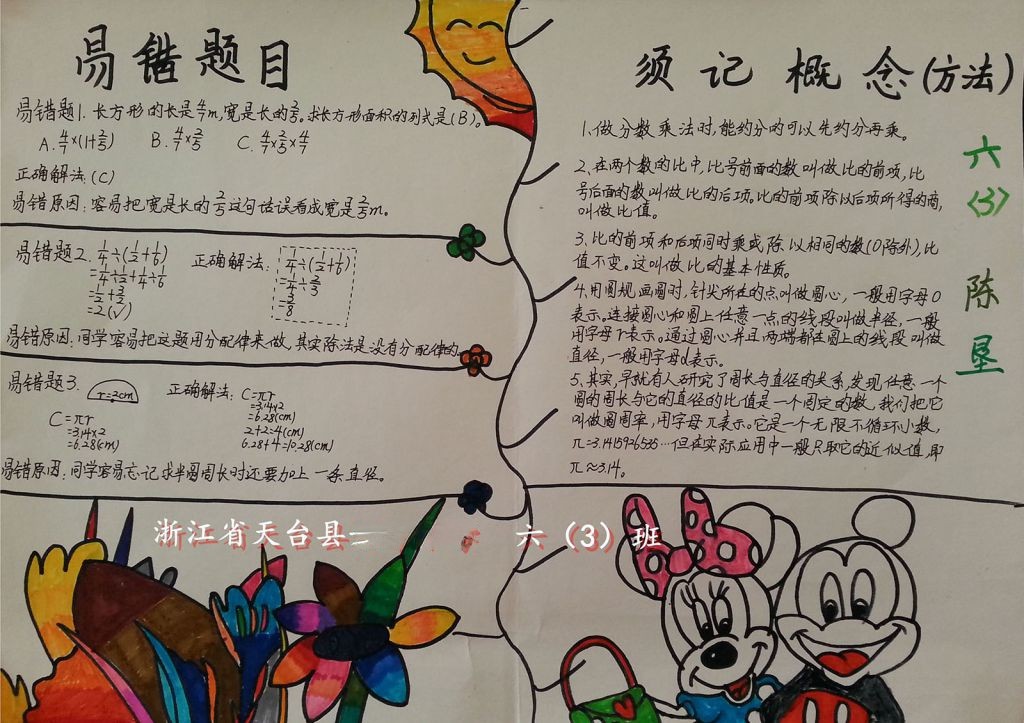 易错题目
易错题1.长方形的长是4/7m,宽是长的2/5。求长方形面积的列式是(B)。
A.4/7×(1+2/5) B.4/7×2/5 C.4/7×2/5×4/7
正确解法:(C)
易错原因:容易把宽是长的2/5这句话误看成宽是2/5m。
易错题2.1/4÷(1/2+1/6)
=1/4÷1/2+1/4÷1/6
=1/2+3/2
=2(√)
正确解法:
1/4÷(1/2+1/6)
=1/4÷2/3
=3/8
易错原因:同学容易把这题用分配律来做,其实除法是没有分配律的。
易错题3.
r=2cm
C=πr
=3.14×2
=6.28(cm)
正确解法:C=πr
=3.14×2
=6.28(cm)
2+2=4(cm)
6.28+4=10.28(cm)
易错原因:同学容易忘记求半圆周长时还要加上一条直径。
须记概念(方法)
1.做分数乘法时,能约分的可以先约分再乘。
2.在两个数的比中,比号前面的数叫做比的前项,比
号后面的数叫做比的后项。比的前项除以后项所得的商,
叫做比值。
3.比的前项和后项同时乘或除以相同的数(0除外),比
值不变。这叫做比的基本性质。
4.用圆规画圆时,针尖所在的点叫做圆心,一般用字母O
表示。连接圆心和圆上任意一点的线段叫做半径,一般
用字母r表示。通过圆心并且两端都在圆上的线段叫做
直径,一般用字母d表示。
5.其实,早就有人研究了周长与直径的关系,发现任意一个
圆的周长与它的直径的比值是一个固定的数,我们把它
叫做圆周率,用字母π表示。它是一个无限不循环小数,
π=3.1415926535…但在实际应用中一般只取它的近似值,即
π≈3.14。
六
(3)
陈
垦
浙江省天台县 六(3)班